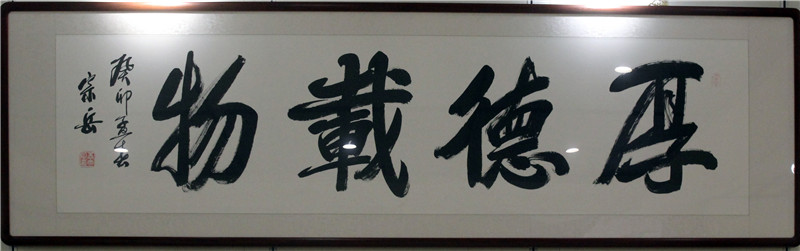 厚德載物
癸卯夏
宗岳